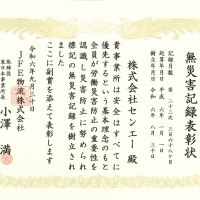 無災害記録表彰状
記録月数 第二十二次 三百六十八ヶ月
起算年月日 平成 六年 一月 一日
樹立年月日 令和 六年 八月 三十日
株式会社センエー 殿
貴事業所は安全はすべてに
優先するという基本理念のもと
全員が労働災害防止の重要性を
認識し災害防止に努められ
標記の無災害記録を樹立され
ました
ここに副賞を添えて表彰します
令和六年九月三十日
JFE物流株式会社
取締役
東日本事業所長
小澤 満